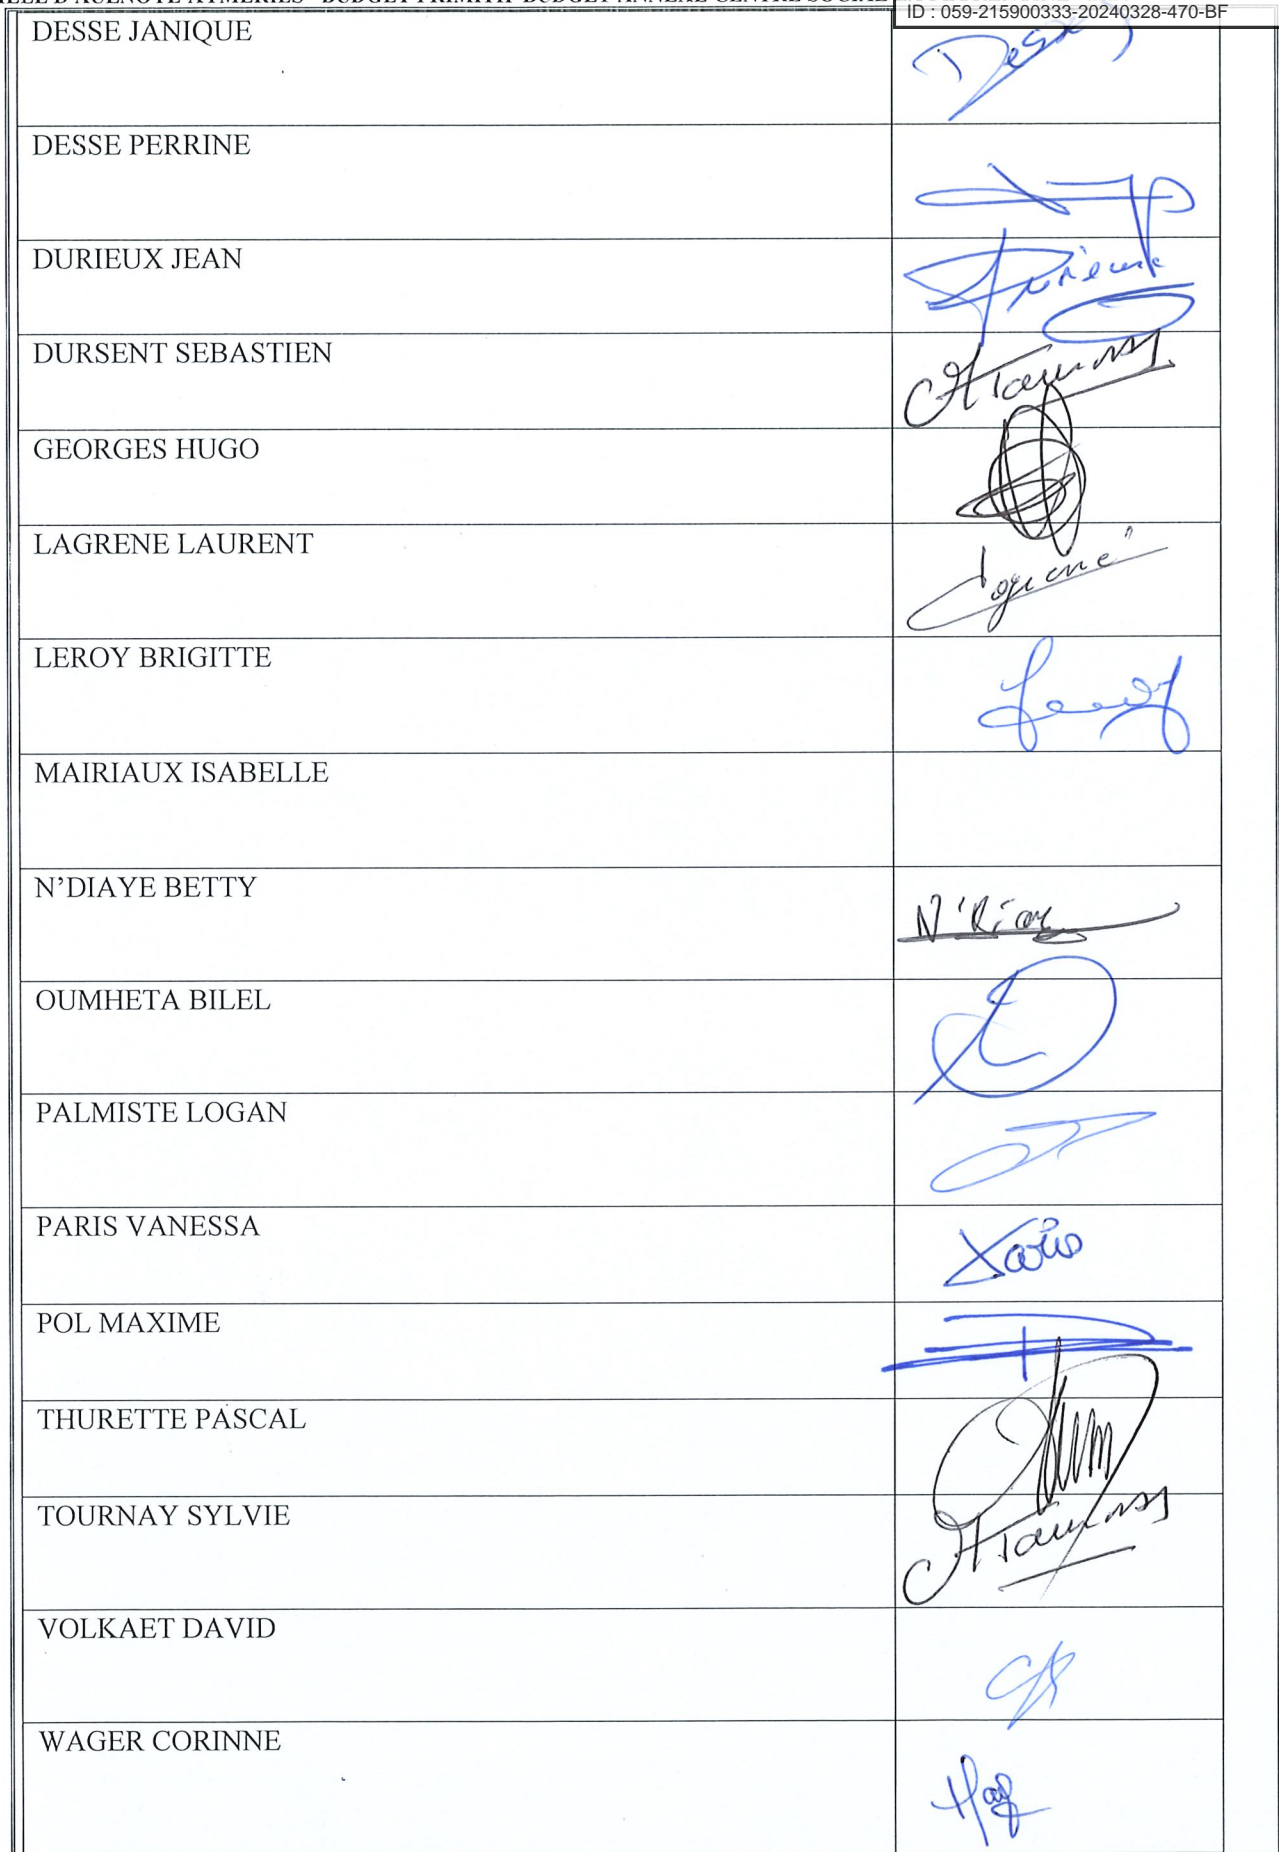 ID : 059-215900333-20240328-470-BF
DESSE JANIQUE
DESSE PERRINE
DURIEUX JEAN
Durieux
DURSENT SEBASTIEN
GEORGES HUGO
LAGRENE LAURENT
LEROY BRIGITTE
MAIRIAUX ISABELLE
N'DIAYE BETTY
OUMHETA BILEL
PALMISTE LOGAN
PARIS VANESSA
Paris
POL MAXIME
THURETTE PASCAL
TOURNAY SYLVIE
VOLKAET DAVID
WAGER CORINNE